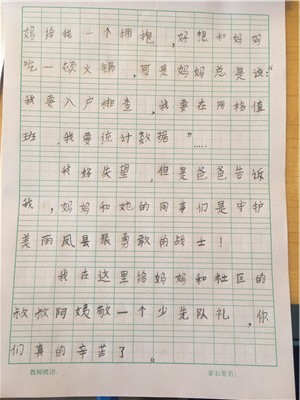 妈给我一个拥抱，好想和妈妈
吃一顿火锅，可是妈妈总是说:“
我要入户排查，我要在网格值
班，我要统计数据”……
我好失望，但是爸爸告诉
我，妈妈和她的同事们是守护
美丽凤县最勇敢的战士！
我在这里给妈妈和社区的
叔叔阿姨敬一个少先队礼，你
们真的辛苦了。
教师概语： 家长签名：